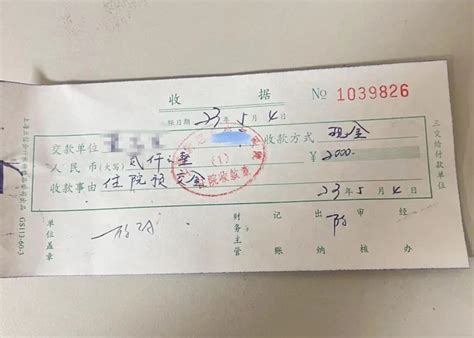 收 据 № 1039826
日期 23 年 5 月 4 日
交款单位 收款方式 现金
人民币(大写) 贰仟 ￥2000
收款事由 住院预交金
23 年 5 月 4 日
三交给付款单位
单位盖章 财务主管 记账 出纳 审核 经办
GS113-60-3
(1)
院收款章